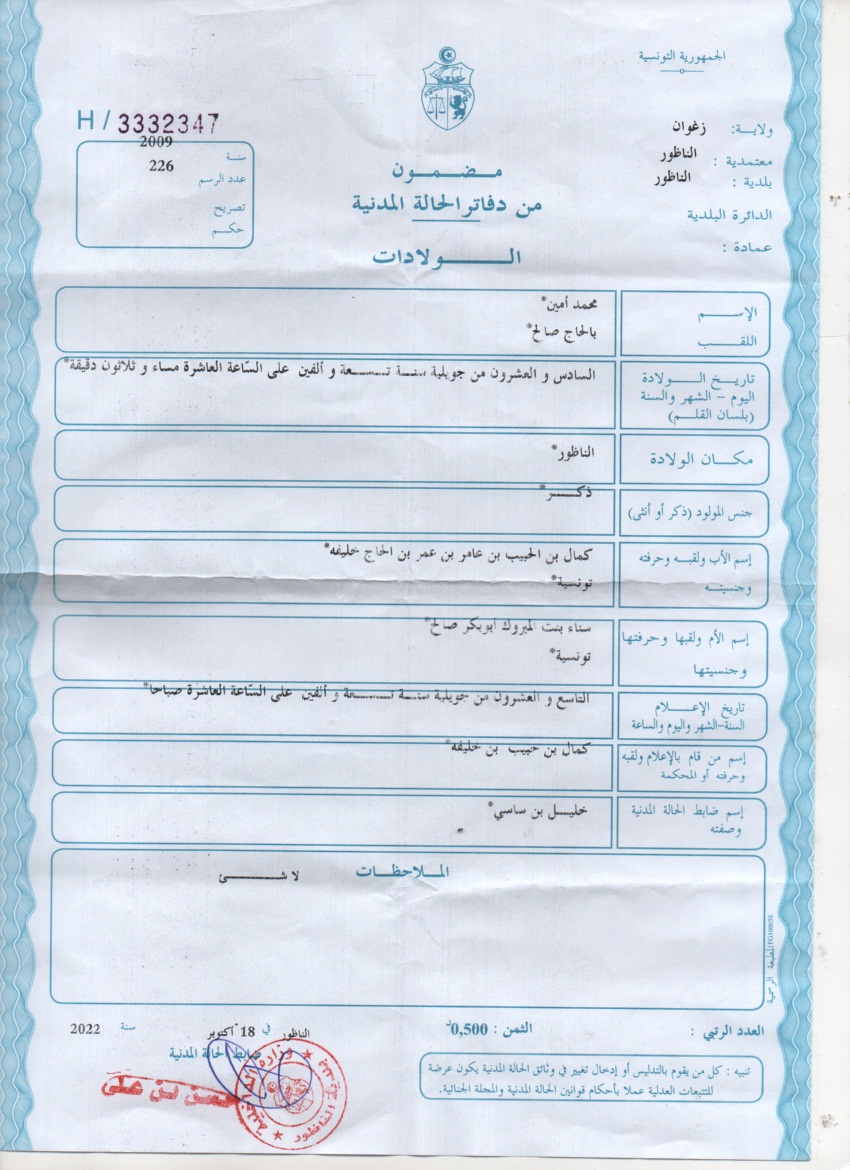 الجمهورية التونسية
ولايـــة: زغوان
معتمدية : الناظور
بلدية : الناظور
الدائرة البلدية
عمادة :
H / 3332347
سنة 2009
عدد الرسم 226
تصريح
حكـــم
مـضـمـون
من دفاتر الحالة المدنية
الـــولادات
الإســـم
محمد أمين*
اللقـــب
بالحاج صالح*
تاريـخ الـــولادة
اليوم - الشهر والسنة
(بلسان القلـم)
السادس و العشرون من جويلية سنـة تـسـعة و ألفين على السّاعة العاشرة مساء و ثلاثون دقيقة*
مكـان الولادة
الناظور*
جنس المولود (ذكر أو أنثى)
ذكـــر*
إسم الأب ولقبـه وحرفته
وجنسيتـــه
كمال بن الحبيب بن عامر بن عمر بن الحاج خليفه*
تونسية*
إسم الأم ولقبها وحرفتها
وجنسيتها
سناء بنت المبروك ابوبكر صالح*
تونسية*
تاريخ الإعـــلام
السنة-الشهر واليوم والساعة
التاسع و العشرون من جويلية سنـة تـسـعة و ألفين على السّاعة العاشرة صباحا*
إسم من قام بالإعلام ولقبه
وحرفته أو المحكمة
كمال بن حبيب بن خليفه*
إسم ضابط الحالة المدنية
وصفته
خليـــل بن ساسي*
الملاحظـات
لا شـــئ
العدد الرتبي :
الثمن : 0,500د
الناظور في 18 أكتوبر سنة 2022
ضابط الحالة المدنية
تنبيه : كل من يقوم بالتدليس أو إدخال تغيير في وثائق الحالة المدنية يكون عرضة
للتتبعات العدلية عملا بأحكام قوانين الحالة المدنية والمجلة الجنائية.
بن علي
الناظور